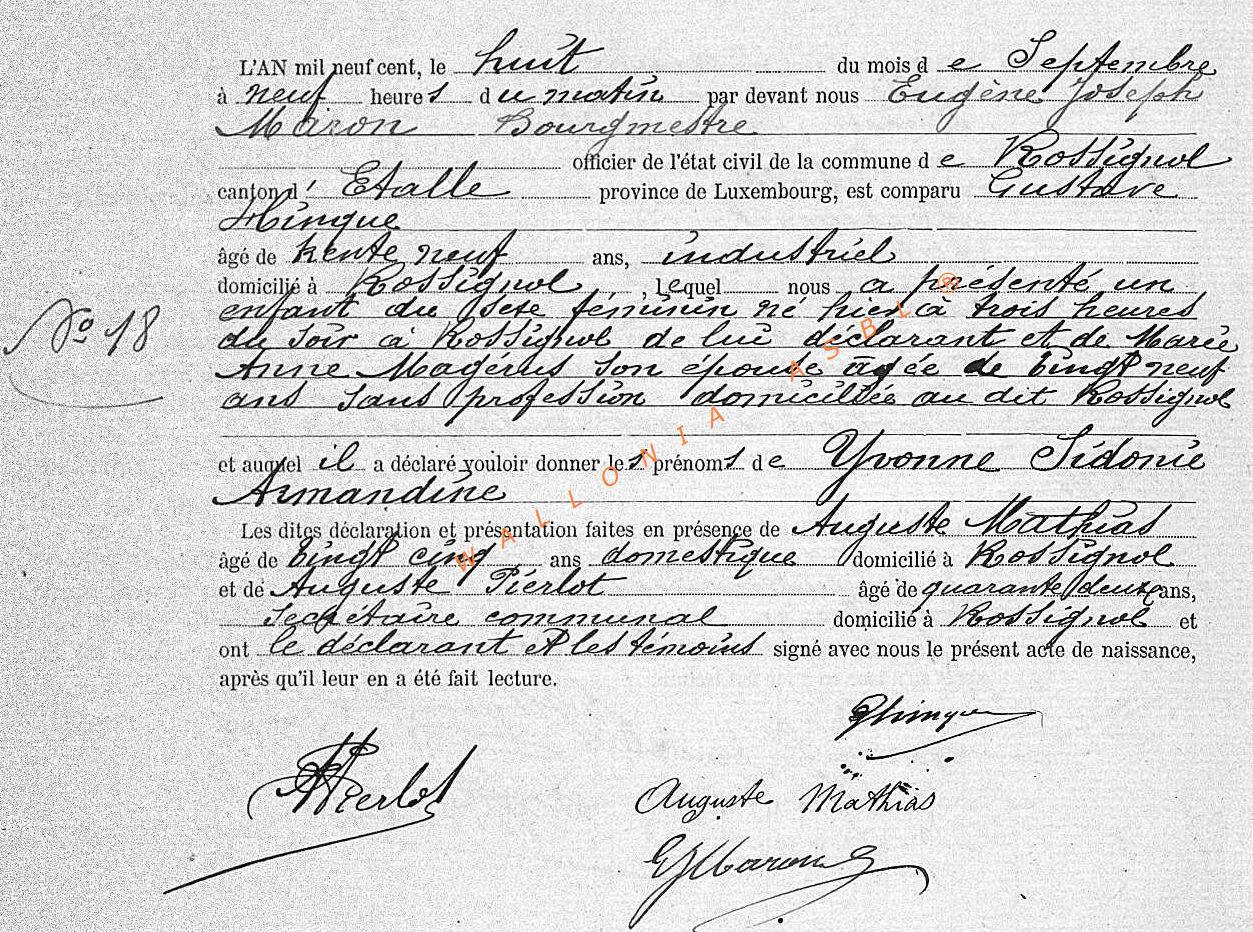 L'AN mil neuf cent, le huit du mois d e Septembre
à neuf heures du matin par devant nous Eugène Joseph
Maron Bourgmestre
officier de l'état civil de la commune d e Rossignol
canton d' Etalle province de Luxembourg, est comparu Gustave
Hinque
âgé de trente neuf ans, industriel
domicilié à Rossignol, lequel nous a présenté un
enfant du sexe féminin né hier à trois heures
du soir à Rossignol de lui déclarant et de Marie
N° 18
Anne Magérus son épouse agée de vingt neuf
ans sans profession domiciliée au dit Rossignol
et auquel il a déclaré vouloir donner les prénoms de Yvonne Sidonie
Armandine
Les dites déclaration et présentation faites en présence de Auguste Mathias
âgé de vingt cinq ans domestique domicilié à Rossignol
et de Auguste Pierlot âgé de quarante deux ans,
secrétaire communal domicilié à Rossignol et
ont le déclarant et les témoins signé avec nous le présent acte de naissance,
après qu'il leur en a été fait lecture.
GHinque
APierlot
Auguste Mathias
EJMaron
WALLONIA ASBL ®